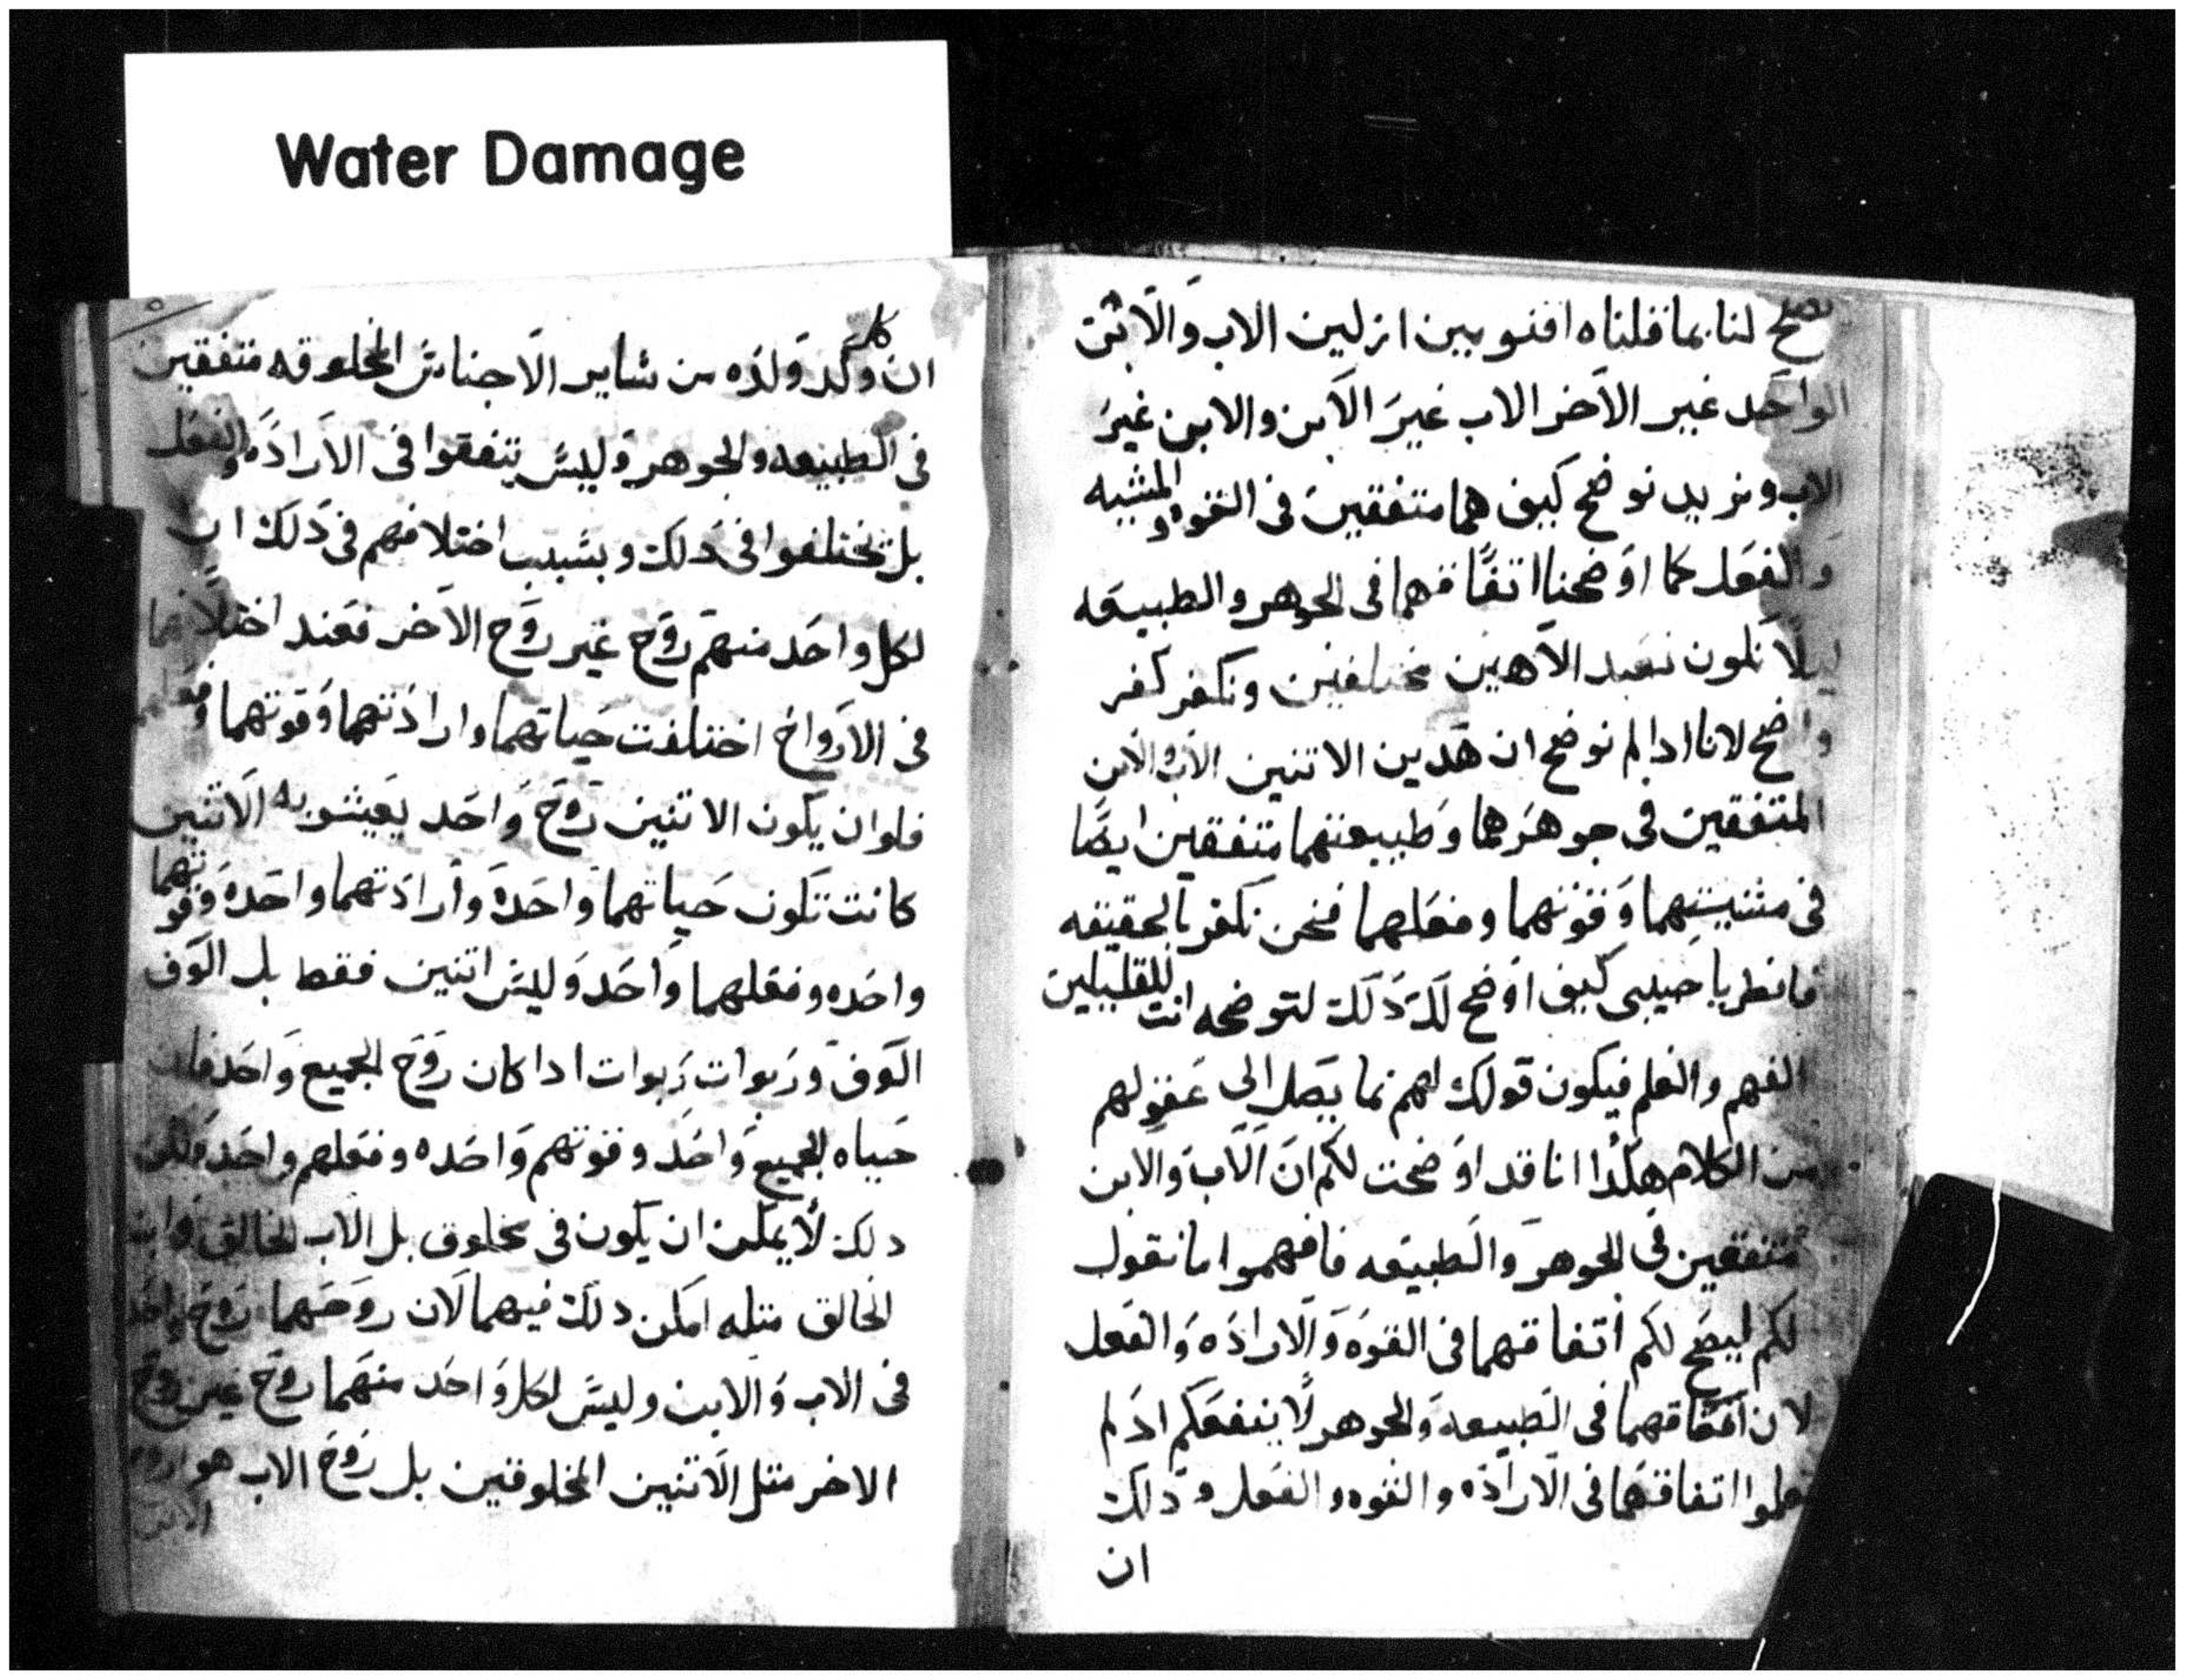 Water Damage
لنا بما قلناه اقنوبين ازلين الاب والابن
الواحد غير الاخر الاب غير الابن والابن غير
الاب ونريد نوضح كيف هما متفقين في القوه والمشيه
والفعل كما اوضحنا اتفاقهما في الجوهر والطبيعه
ليلا نكون نعبد الاهين مختلفين ونكفر كفر
واضح لانا ادا لم نوضح ان هدين الاتنين الاب والابن
المتفقين في جوهرهما وطبيعتهما متفقين ايضا
في مشيتهما وقوتهما وفعلهما فنحن نكفر بالحقيقه
فانظر يا حبيبي كيف اوضح لك دلك لتوضحه انت للقليلين
الفهم والعلم فيكون قولك لهم بما يصل الي عقولهم
من الكلام هكدا انا قد اوضحت لكم ان الاب والابن
متفقين في الجوهر والطبيعه فافهموا ما نقول
لكم ليصح لكم اتفاقهما في القوه والاراده والفعل
لان اتفاقهما في الطبيعه والجوهر لا ينفعكم اد لم
تعلموا اتفاقهما في الاراده والقوه والفعل ودلك
ان
ان كل وَلَد ووالده من ساير الاجناس المخلوقه متفقين
في الطبيعه والجوهر وليس يتفقوا في الاراده والفعل
بل يختلفوا في دلك وبسبب اختلافهم في دلك ان
لكل واحد منهم روح غير روح الاخر فعند اختلافهما
في الارواح اختلفت حياتهما وارادتهما وقوتهما
فلو ان يكون الاتنين روح واحد يعيشو به الاتنين
كانت تكون حياتهما واحده وارادتهما واحده وقوتهما
واحده وفعلهما واحد وليس اتنين فقط بل الوف
الوف وربوات ربوات ادا كان روح الجميع واحد فان
حياه الجميع واحد وقوتهم واحده وفعلهم واحد ولكن
دلك لا يمكن ان يكون في مخلوق بل الاب الخالق وابن
الخالق متله امكن دلك فيهما لان روحهما روح واحد
في الاب والابن وليس لكل واحد منهما روح غير روح
الاخر متل الاتنين المخلوقين بل روح الاب هو روح
الابن